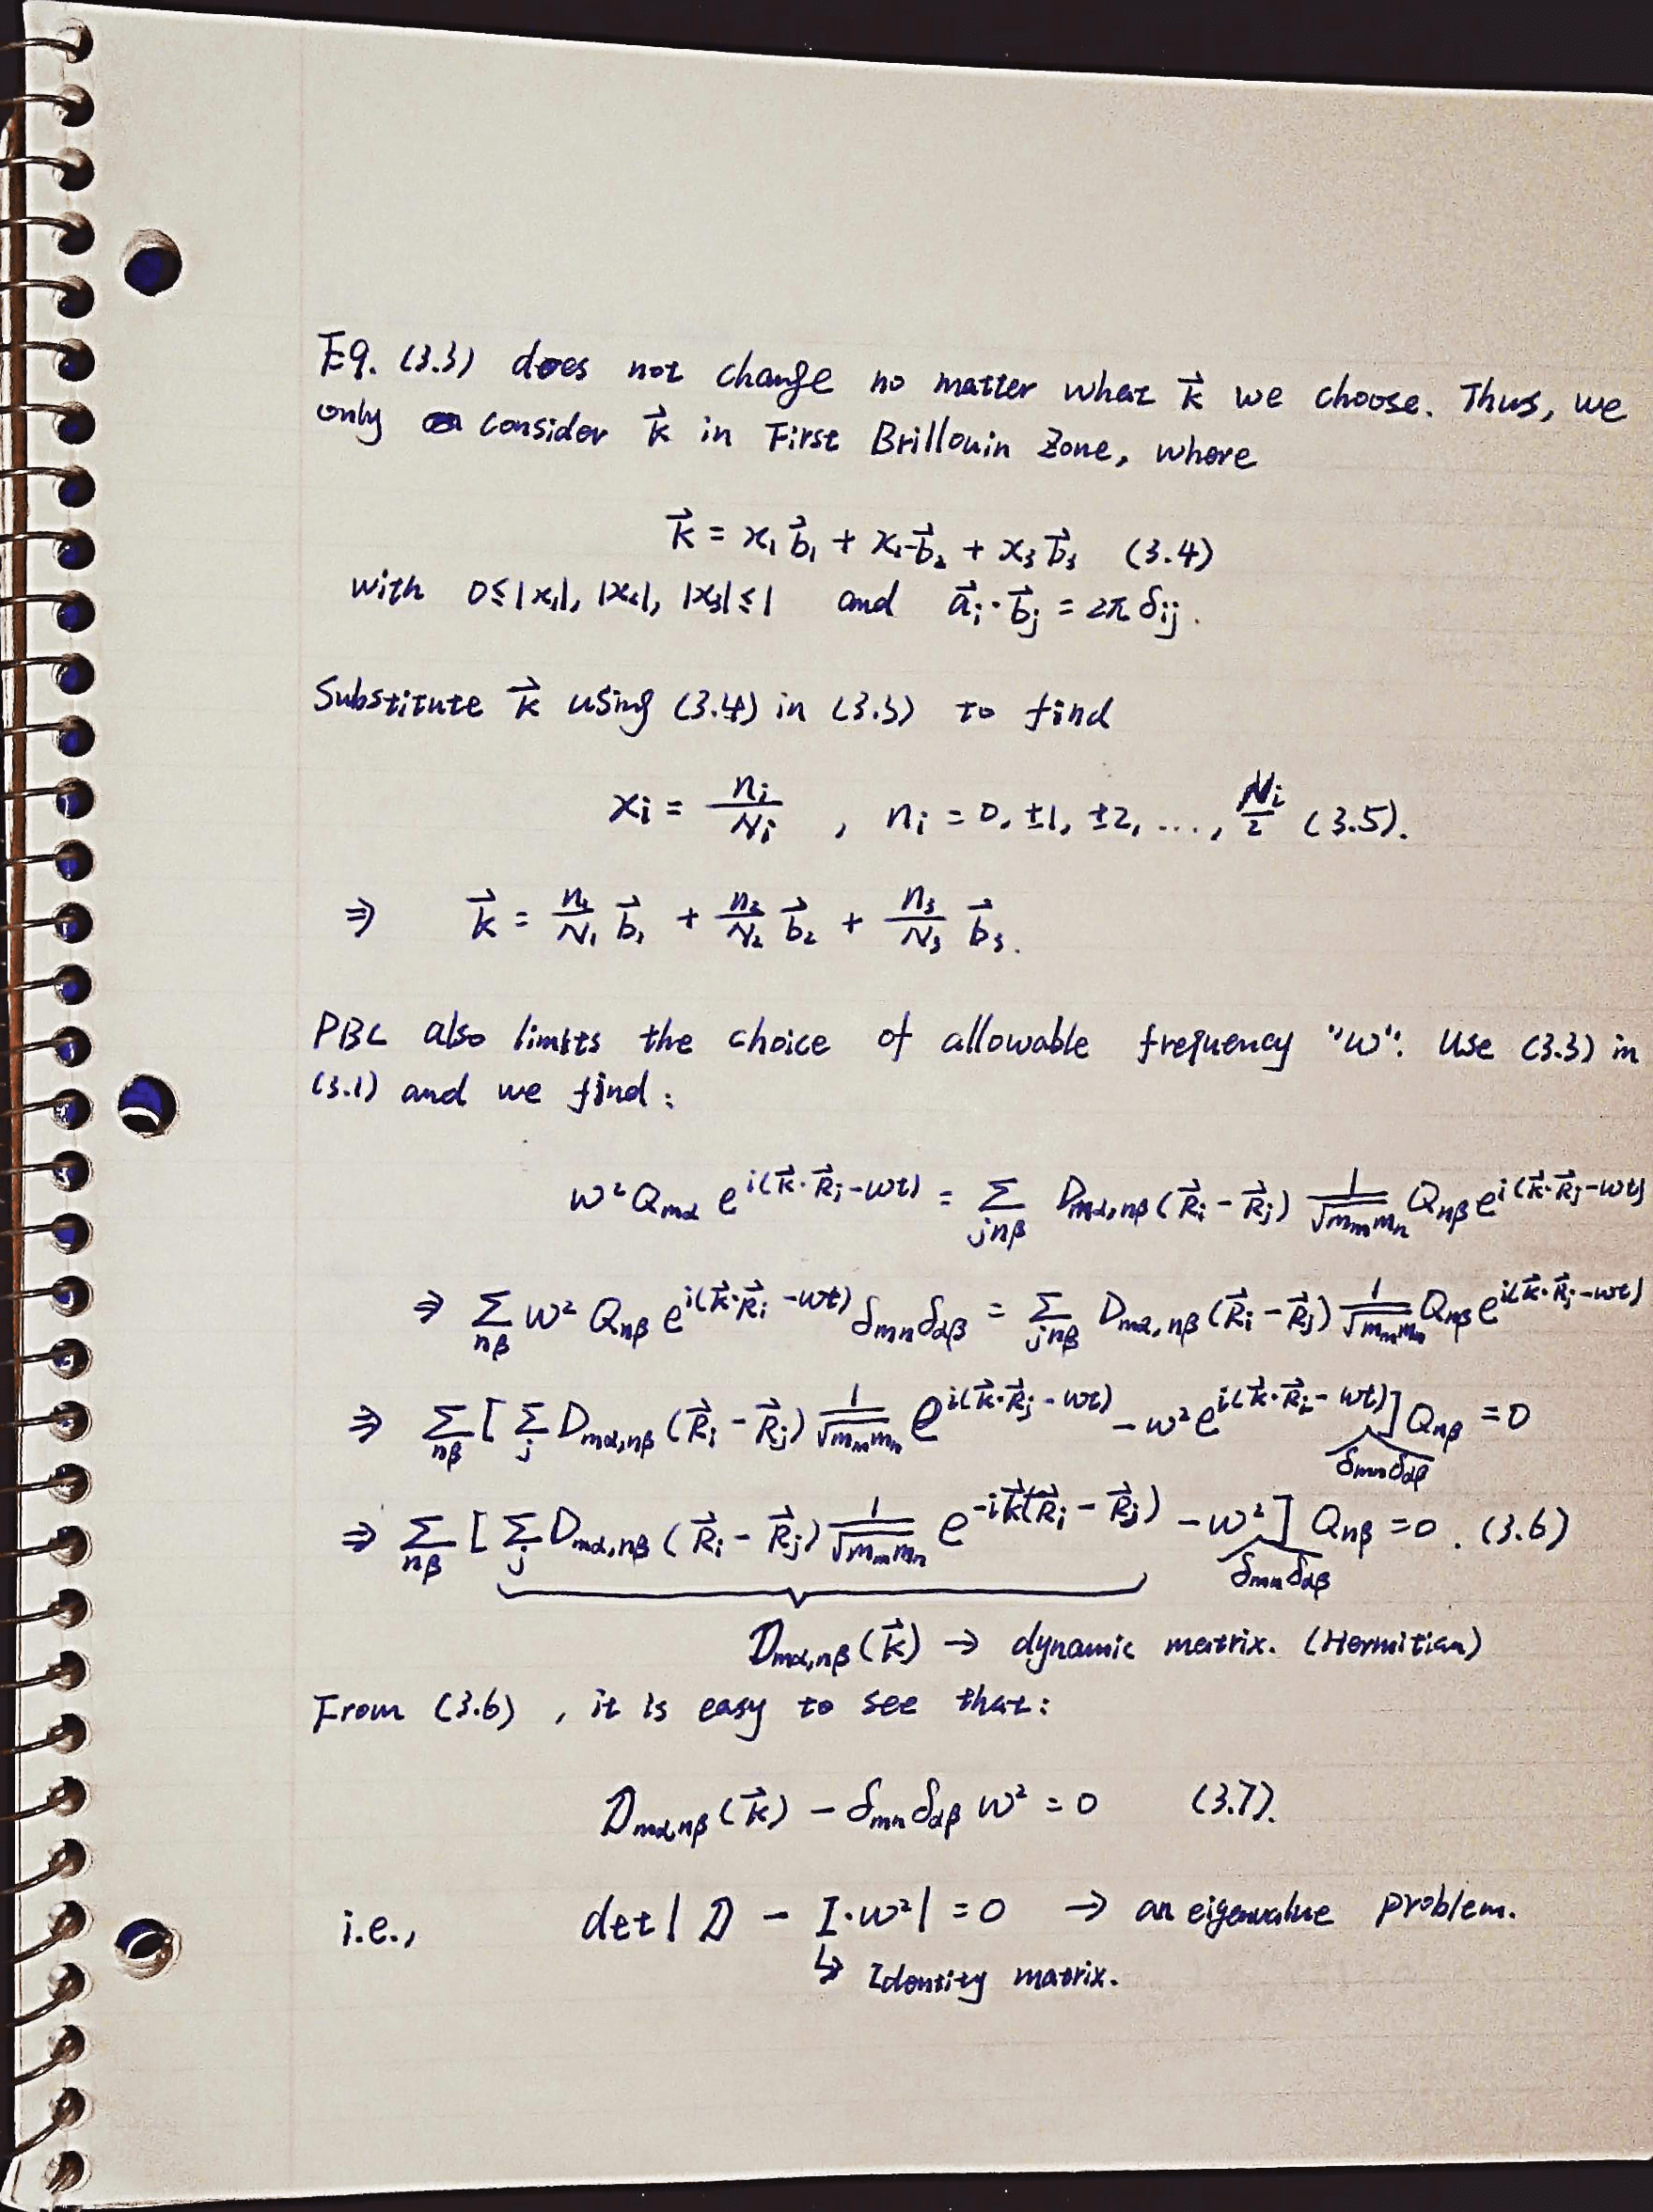 Eq. (3.3) does not change no matter what k⃗ we choose. Thus, we
only consider k⃗ in First Brillouin Zone, where
k⃗ = x₁ b⃗₁ + x₂ b⃗₂ + x₃ b⃗₃ (3.4)
with 0≤|x₁|, |x₂|, |x₃|≤1 and a⃗ᵢ·b⃗ⱼ = 2π δᵢⱼ.
Substitute k⃗ using (3.4) in (3.3) to find
xᵢ = nᵢ/Nᵢ , nᵢ = 0, ±1, ±2, ..., Nᵢ/2 (3.5).
⇒ k⃗ = n₁/N₁ b⃗₁ + n₂/N₂ b⃗₂ + n₃/N₃ b⃗₃.
PBC also limits the choice of allowable frequency "ω". Use (3.3) in
(3.1) and we find:
ω² Q_{mα} e^{i(k⃗·R⃗ᵢ-ωt)} = Σ_{jnβ} D_{mα,nβ}(R⃗ᵢ - R⃗ⱼ) 1/√(m_m m_n) Q_{nβ} e^{i(k⃗·R⃗ⱼ-ωt)}
⇒ Σ_{nβ} ω² Q_{nβ} e^{i(k⃗·R⃗ᵢ-ωt)} δ_{mn} δ_{αβ} = Σ_{jnβ} D_{mα,nβ}(R⃗ᵢ - R⃗ⱼ) 1/√(m_m m_n) Q_{nβ} e^{i(k⃗·R⃗ⱼ-ωt)}
⇒ Σ_{nβ} [ Σ_j D_{mα,nβ}(R⃗ᵢ - R⃗ⱼ) 1/√(m_m m_n) e^{i(k⃗·R⃗ⱼ-ωt)} - ω² e^{i(k⃗·R⃗ᵢ-ωt)} ] Q_{nβ} = 0
δ_{mn} δ_{αβ}
⇒ Σ_{nβ} [ Σ_j D_{mα,nβ}(R⃗ᵢ - R⃗ⱼ) 1/√(m_m m_n) e^{-ik⃗(R⃗ᵢ - R⃗ⱼ)} - ω² ] Q_{nβ} = 0. (3.6)
δ_{mn} δ_{αβ}
𝔻_{mα,nβ}(k⃗) → dynamic matrix. (Hermitian)
From (3.6), it is easy to see that:
𝔻_{mα,nβ}(k⃗) - δ_{mn} δ_{αβ} ω² = 0 (3.7).
i.e., det| 𝔻 - I·ω² | = 0 → an eigenvalue problem.
↳ Identity matrix.